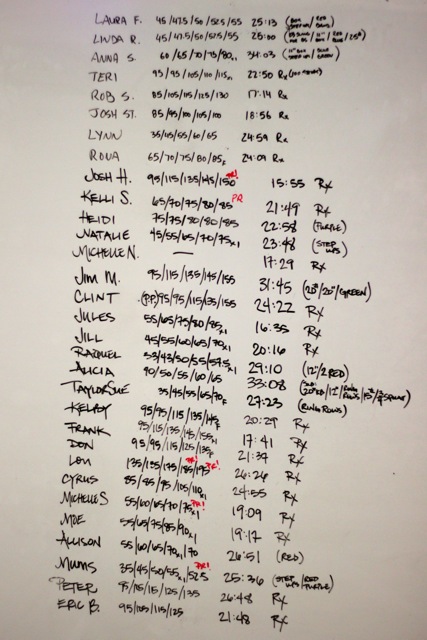 LAURA F. 45/47.5/50/52.5/55 25:13 (RED
LINDA R. 45/47.5/50/52.5/55 25:00
ANNA S. 60/65/70/75/80x1 34:03
TERI 95/95/105/110/115x1 22:50 Rx
ROB S. 85/105/115/125/130 17:14 Rx
JOSH ST. 85/95/100/105/110 18:56 Rx
LYNN 35/45/55/60/65 24:59 Rx
ROUA 65/70/75/80/85F 24:09 Rx
JOSH H. 95/115/135/145/150 PR! 15:55 Rx
KELLI S. 65/70/75/80/85 PR 21:49 Rx
HEIDI 75/75/80/80/85 22:58 (PURPLE)
NATALIE 45/55/65/70/75x1 23:48 (STEP UPS)
MICHELLE N. — 17:29 Rx
JIM M. 95/115/135/145/155 31:45 (20#/20"/GREEN)
CLINT (PP)75/95/115/135/155 24:22 Rx
JULES 55/65/75/80/85x1 16:35 Rx
JILL 45/55/60/65/70x1 20:16 Rx
RAQUEL 53/43/50/55/57.5x1 29:10 (12"/2 RED)
ALICIA 40/50/55/60/65 33:08
TAYLOR SUE 35/45/55/65/70F 27:23 (RING ROWS)
KELBY 95/95/115/135/145F 20:29 Rx
FRANK 95/115/135/145/155x1 17:41 Rx
DON 95/95/115/125/135F 21:37 Rx
LOU 135/155/175/185/195 PR! 26:26 Rx
CYRUS 85/85/95/105/110x1 24:55 Rx
MICHELLE S 55/60/65/70/75x1 PR! 19:09 Rx
MOE 55/65/75/85/90x1 19:17 Rx
ALLISON 55/60/65/70x1/70 26:51 (RED)
MUMS 35/45/50/55x1/52.5 PR! 25:36 (STEP UPS/RED PURPLE)
PETER 95/115/115/125/135 26:48 Rx
ERIC B. 95/105/115/125 21:48 Rx